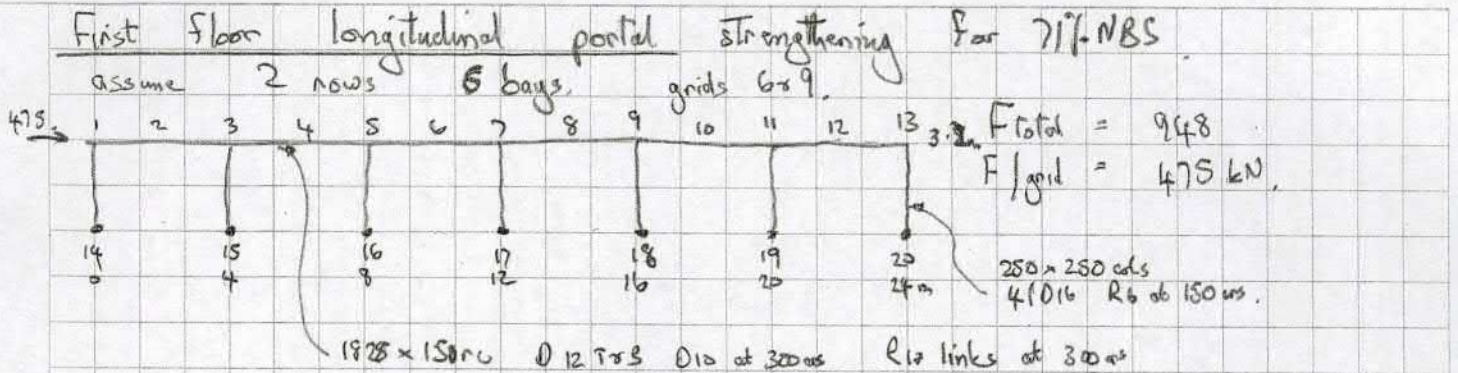 First floor longitudinal portal strengthening for 71% NBS
assume 2 rows 6 bays. grids 6 & 9.
475 1 2 3 4 5 6 7 8 9 10 11 12 13 F total = 948
F/grid = 475 kN.
14 15 16 17 18 19 20
0 4 8 12 16 20 24 m
250 x 250 cols
4/D16 R6 at 150 crs.
1828 x 150 rc D12 T&B D10 at 300 crs R10 links at 300 crs